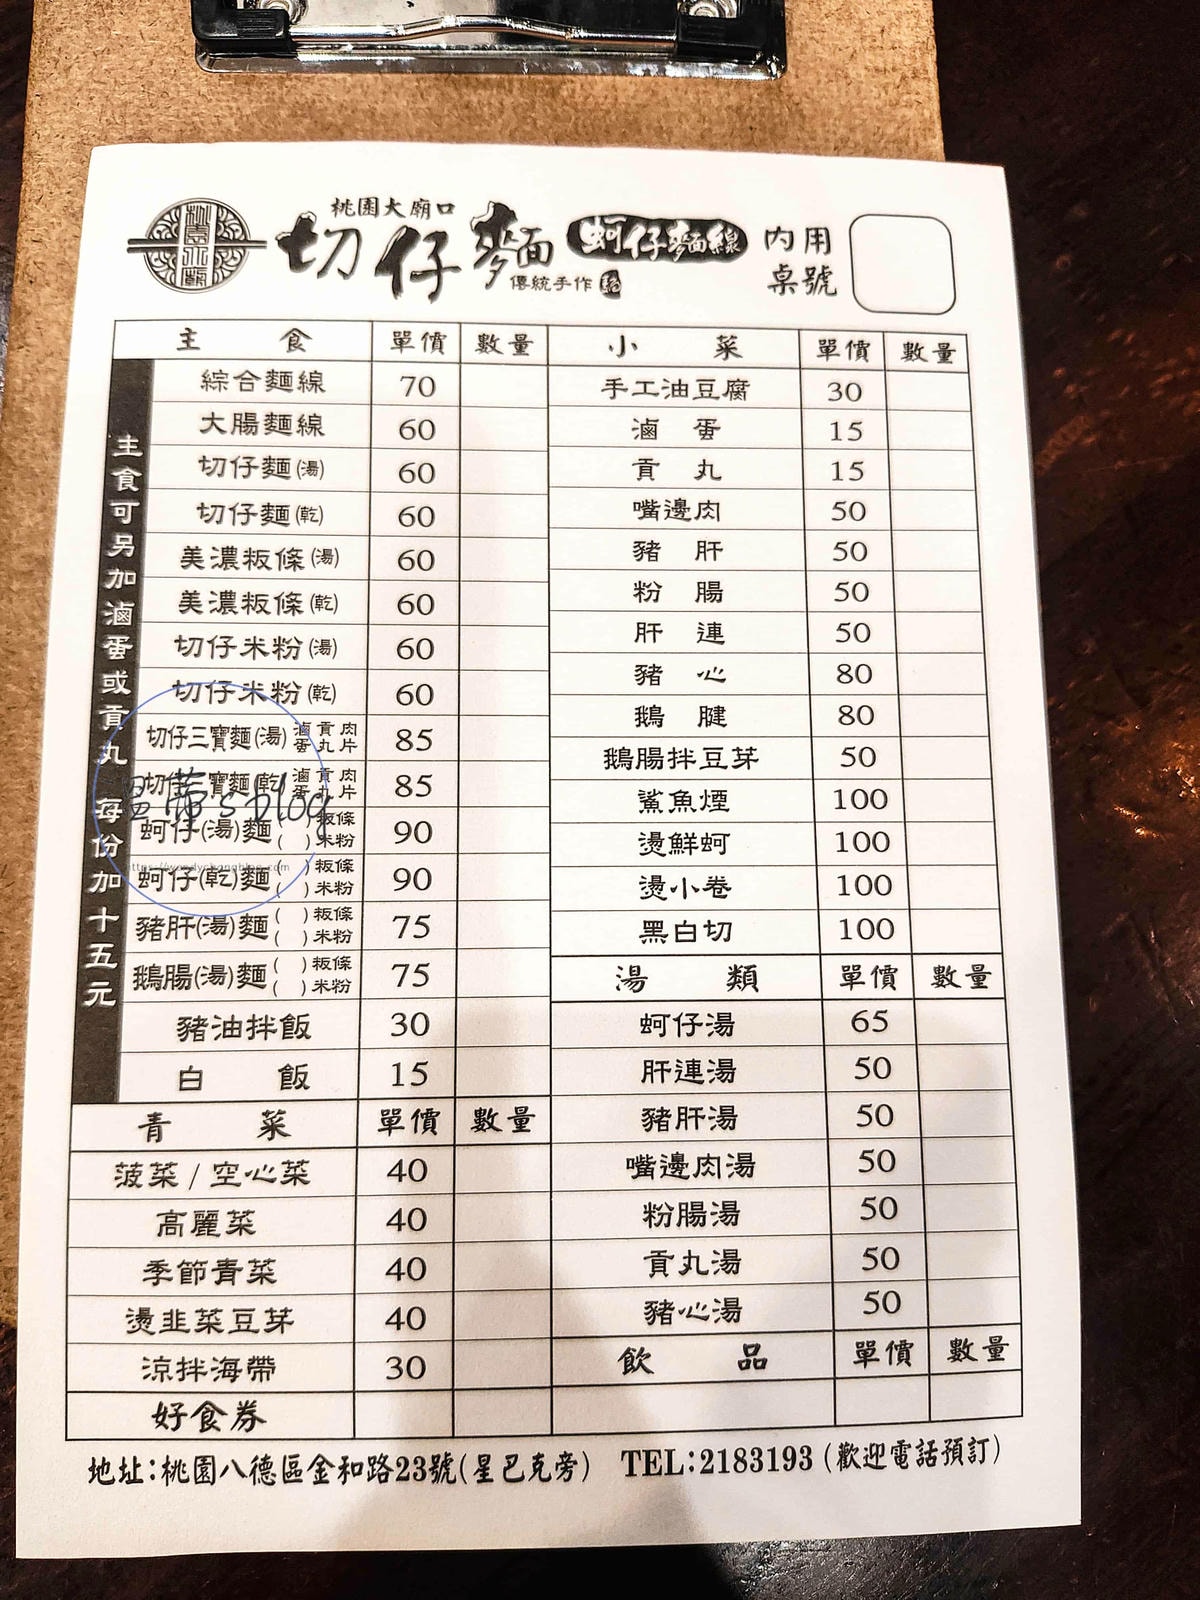 桃園大廟口
切仔麵 蚵仔麵線 內用
傳統手作 桌號
主食 單價 數量
主食可另加滷蛋或貢丸 每份加十五元
綜合麵線 70
大腸麵線 60
切仔麵(湯) 60
切仔麵(乾) 60
美濃粄條(湯) 60
美濃粄條(乾) 60
切仔米粉(湯) 60
切仔米粉(乾) 60
切仔三寶麵(湯) 滷蛋 貢丸 肉片 85
切仔三寶麵(乾) 滷蛋 貢丸 肉片 85
蚵仔(湯)麵 ( )粄條 ( )米粉 90
蚵仔(乾)麵 ( )粄條 ( )米粉 90
豬肝(湯)麵 ( )粄條 ( )米粉 75
鵝腸(湯)麵 ( )粄條 ( )米粉 75
豬油拌飯 30
白飯 15
青菜 單價 數量
菠菜 / 空心菜 40
高麗菜 40
季節青菜 40
燙韭菜豆芽 40
涼拌海帶 30
好食券
小菜 單價 數量
手工油豆腐 30
滷蛋 15
貢丸 15
嘴邊肉 50
豬肝 50
粉腸 50
肝連 50
豬心 80
鵝腱 80
鵝腸拌豆芽 50
鯊魚煙 100
燙鮮蚵 100
燙小卷 100
黑白切 100
湯類 單價 數量
蚵仔湯 65
肝連湯 50
豬肝湯 50
嘴邊肉湯 50
粉腸湯 50
貢丸湯 50
豬心湯 50
飲品 單價 數量
地址:桃園八德區金和路23號(星巴克旁) TEL:2183193 (歡迎電話預訂)
's blog
https://wendychangblog.com